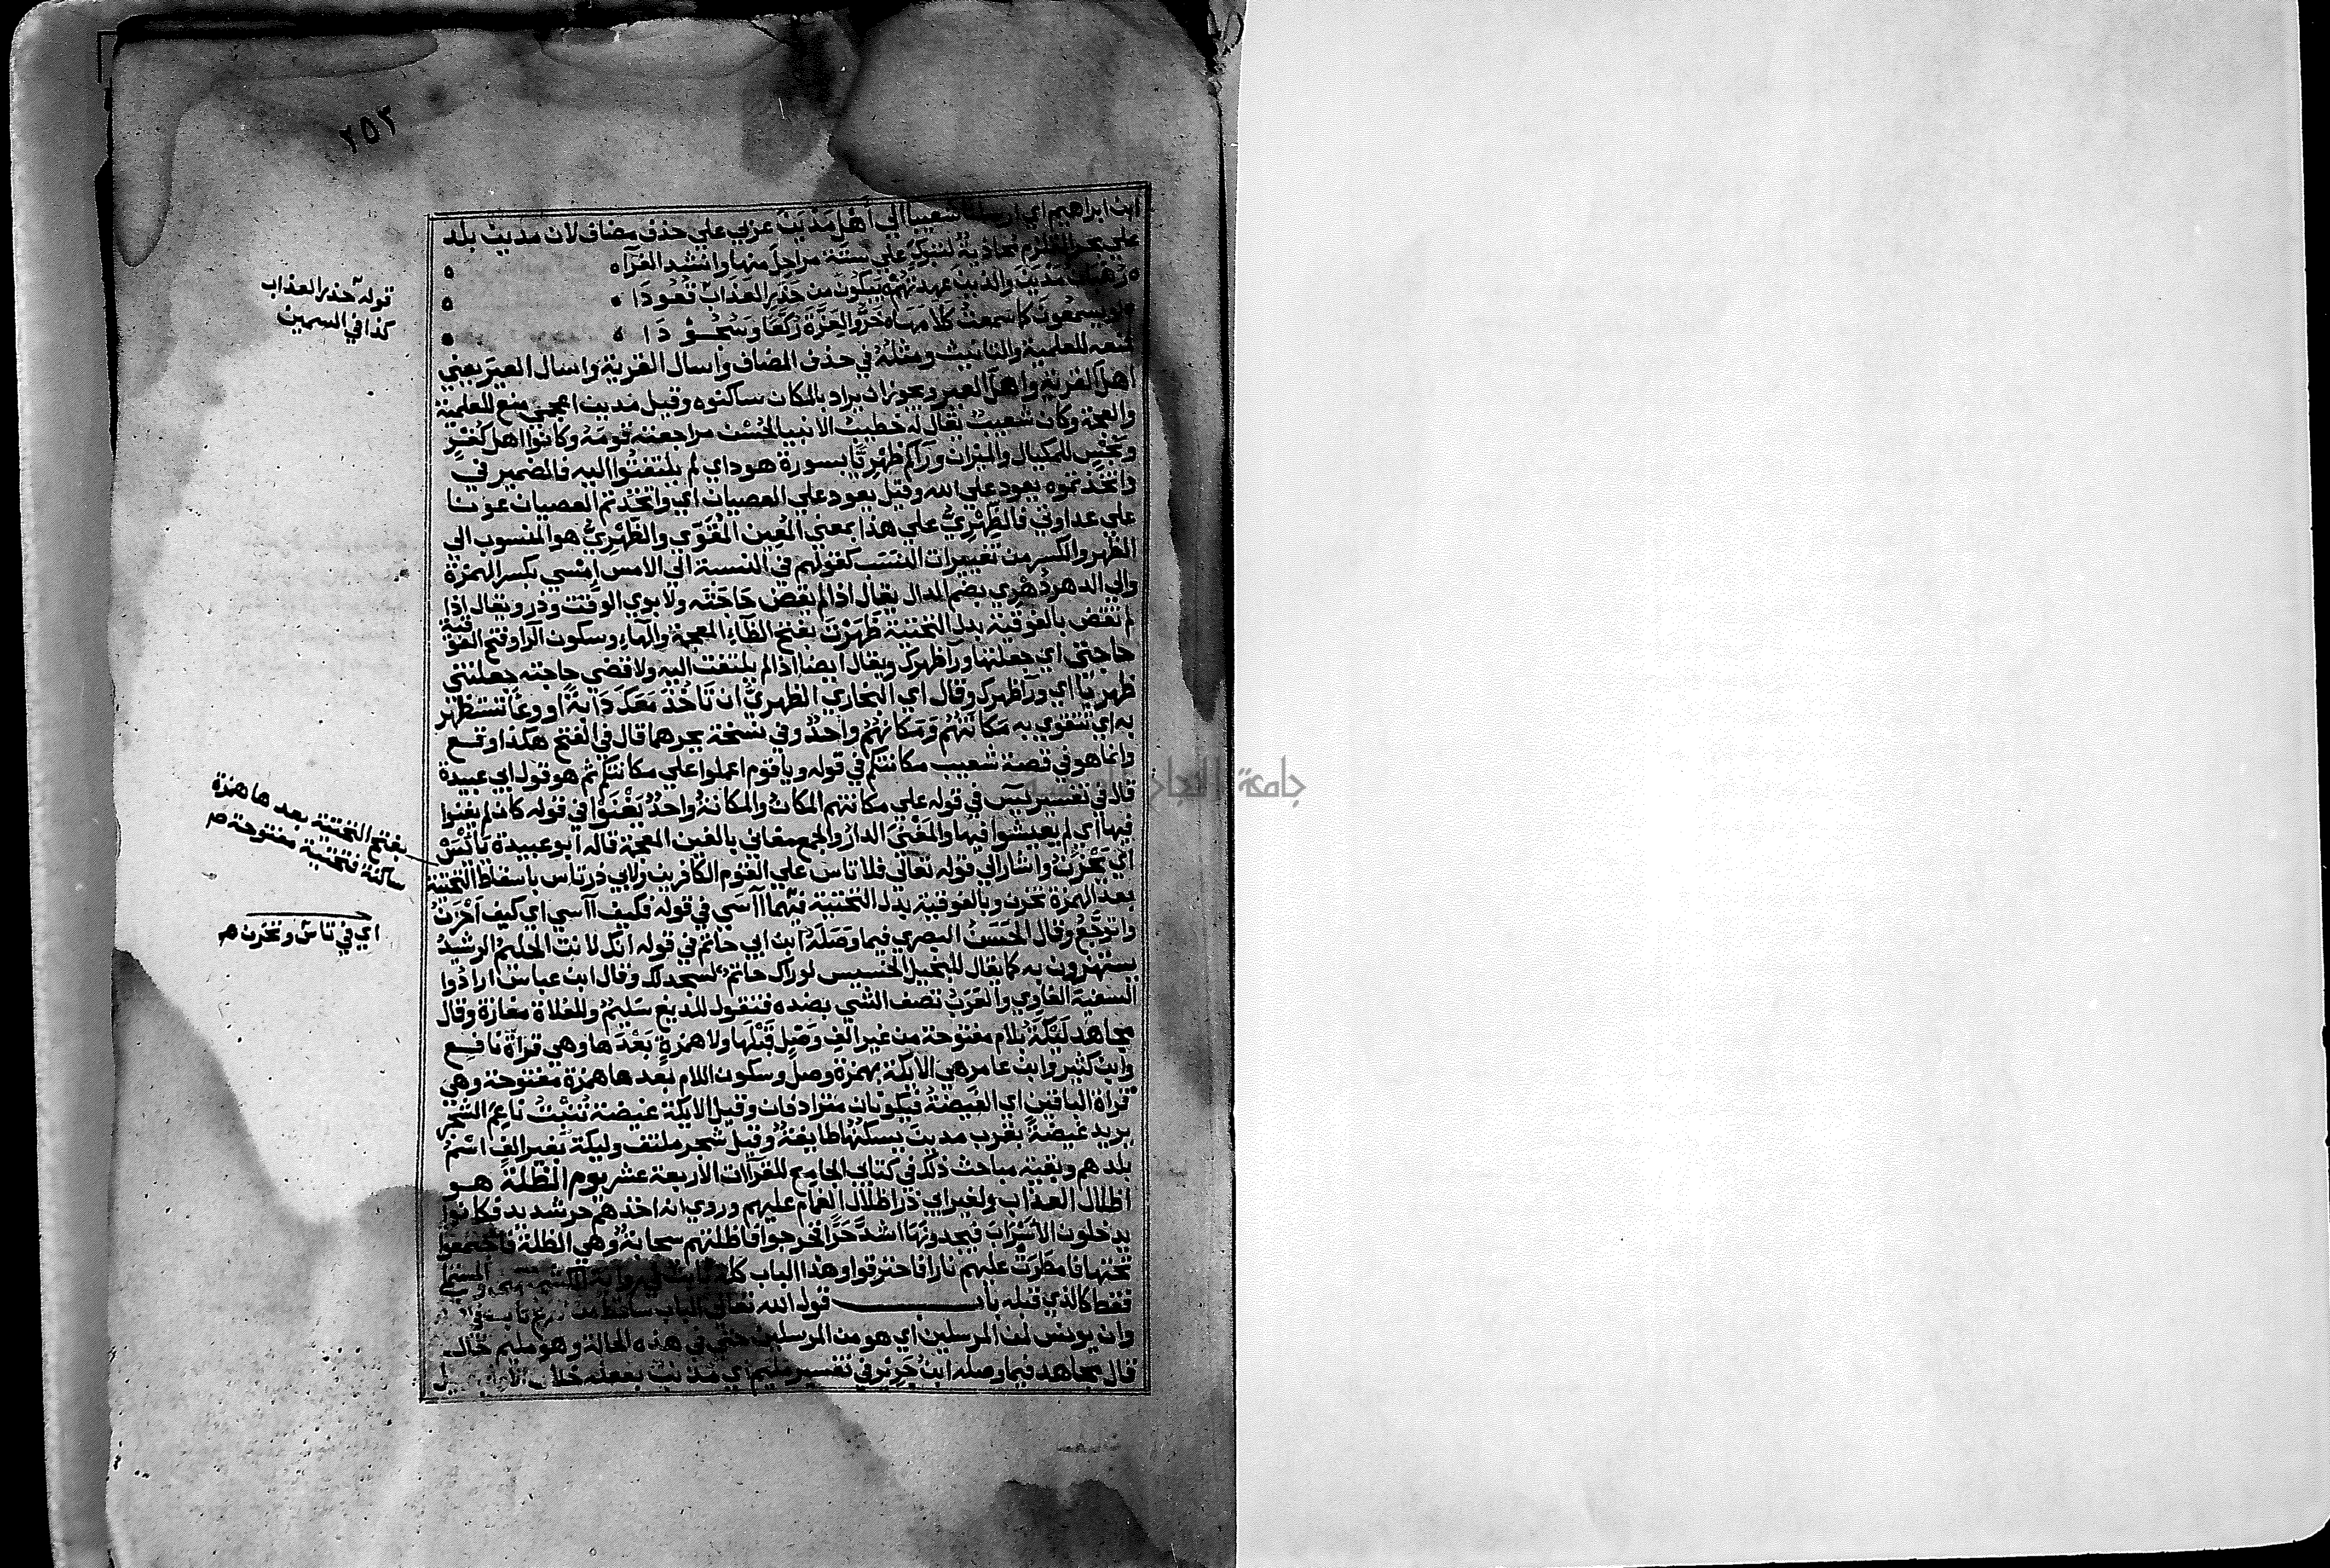 ٢٥٢
ابن ابراهيم اي ارسلنا شعيبا الي أهل مدين عربي علي حذف مضاف لان مدين بلد
علي بحر القلزم محاذية لتبوك علي ستة مراحل منها وانشد الفرآ ه
رهبان مدين والذين عهدتهم ه يبكون من حذر العذاب قعودا ه
لو يسمعون كما سمعت كلامها ه خروا لعزة ركعا وسجودا ه
منعه للعلمية والتانيث ومثله في حذف المضاف واسال القرية واسال العير يعني
اهل القرية واهل العير ويجوز ان يراد بالمكان ساكنوه وقيل مدين اعجمي منع للعلمية
والعجمة وكان شعيب يقال له خطيب الانبيا لحسن مراجعته قومه وكانوا اهل كفر
وبخس للمكيال والميزان ورآكم ظهريا بسورة هود اي لم يلتفتوا اليه فالضمير في
واتخذتموه يعود علي الله وقيل يعود علي العصيان اي واتخذتم العصيان عونا
علي عداوتي فالظهري علي هذا بمعني المعين المقوي والظهري هو المنسوب الي
الظهر والكسر من تغييرات النسب كقولهم في النسبة الي الامس إمسي بكسر الهمزة
والي الدهر دهري بضم الدال يقال اذا لم يقض حاجته ولابوي الوقت وذر ويقال اذا
لم تقض بالفوقية بدل التحتية ظهرت بفتح الظاء المعجمة والهاء وسكون الرا وفتح الفوقية
حاجتي اي جعلتها ورآ ظهرك ويقال ايضا اذا لم يلتفت اليه ولا قضي حاجته جعلتني
ظهريا اي ورآ ظهرك وقال اي البخاري الظهري ان تاخذ معك دابة او وعا تستظهر
به اي تتقوي به مكانتهم ومكانهم واحد وفي نسخة بجرهما قال في الفتح هكذا وقع
وانما هو في قصة شعيب مكانتكم في قوله ويا قوم اعملوا علي مكانتكم ثم هو قول ابي عبيدة
قال في تفسير يس في قوله علي مكانتهم المكان والمكانة واحد يغنوا في قوله كان لم يغنوا
فيها اي لم يعيشوا فيها والمغني الدار والجمع مغاني بالغين المعجمة قاله ابو عبيدة تائس
اي يحزن واشار الي قوله تعالي فلا تاس علي القوم الكافرين ولابي ذر تاس باسقاط التحتية
بعد الهمزة تحزن وبالفوقية بدل التحتية فيهما آسي في قوله فكيف آسي اي كيف احزن
واتوجع وقال الحسن البصري فيما وصله ابن ابي حاتم في قوله انك لانت الحليم الرشيد
يستهزون به كما يقال للبخيل الخسيس لو راك حاتم لسجد لك وقال ابن عباس ارادوا
السفيه الغاوي والعرب تصف الشي بضده فتقول للديغ سليم وللفلاة مفازة وقال
مجاهد ليكة بلام مفتوحة من غير الف وصل قبلها ولا همزة بعدها وهي قراة نافع
وابن كثير وابن عامر هي الايكة بهمزة وصل وسكون اللام بعدها همزة مفتوحة وهي
قراة الباقين اي الغيضة فيكونان مترادفان وقيل الايكة غيضة تنبت ناعم الشجر
يريد غيضة بقرب مدين يسكنها طايفة وقيل شجر ملتف وليكة بغير الف اسم
بلدهم وبقية مباحث ذلك في كتابي الجامع للقرآات الاربعة عشر يوم الظلة هو
اظلال العذاب ولغير ابي ذر اظلال الغمام عليهم وروي انه اخذهم حر شديد فكانوا
يدخلون الاسراب فيجدونها اشد حرا فخرجوا فاظلتهم سحابة وهي الظلة فاجتمعوا
تحتها فامطرت عليهم نارا فاحترقوا وهذا الباب كله ثابت في رواية الكشميهني والمستملي
فقط كالذي قبله باب قول الله تعالي الباب ساقط
وان يونس لمن المرسلين اي هو من المرسلين حتي في هذه الحالة وهو مليم حال
قال مجاهد فيما وصله ابن جرير في تفسير مليم اي مذنب بفعله خلاف
قوله حذر العذاب
كذا في السمين
بفتح التحتية بعدها همزة
ساكنة فتحتية مفتوحة ص
اي في تاس وتحزن ص
جامعة النجاح